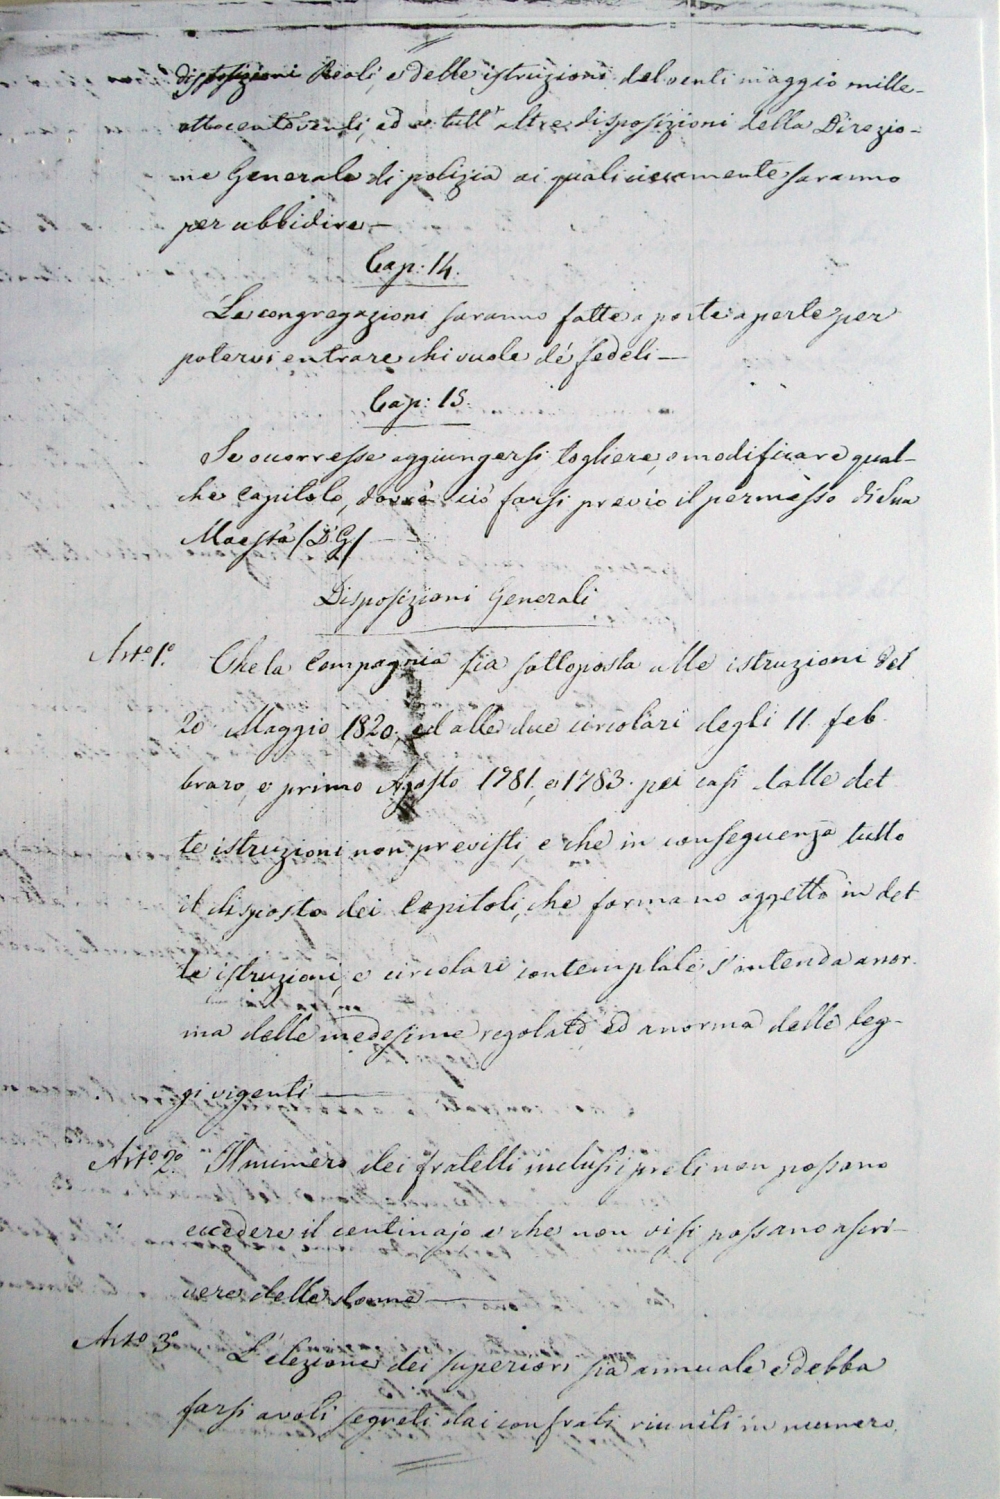 disposizioni Reali, e delle istruzioni del venti maggio mille-
ottocentoventi, ed a tutt'altre disposizioni della Direzio-
ne Generale di polizia ai quali saranno
per ubbidire —
Cap: 14.
Le congregazioni saranno fatte a porte aperte per
potervi entrare chi vuole de' fedeli —
Cap: 15.
Se occorresse aggiungersi, togliere, o modificare qual-
che capitolo, dovrà ciò farsi previo il permesso di Sua
Maestà (D. G.) —
Disposizioni Generali
Art.º 1.º Che la Compagnia sia sottoposta alle istruzioni del
20 Maggio 1820, ed alle due circolari degli 11. feb
braro, e primo Agosto 1781, e 1783. pei casi dalle det
te istruzioni non previsti, e che in conseguenza tutto
il disposto dei Capitoli, che formano oggetto in det
te istruzioni, e circolari contemplate s'intenda a nor-
ma delle medesime regolato ed a norma delle leg-
gi vigenti —
Art.º 2.º Il numero dei fratelli inclusi i preti non possano
eccedere il centinajo e che non vi si possano ascri-
vere delle donne —
Art.º 3.º L'elezione dei superiori sia annuale e debba
farsi a voti segreti dai confrati riuniti in numero